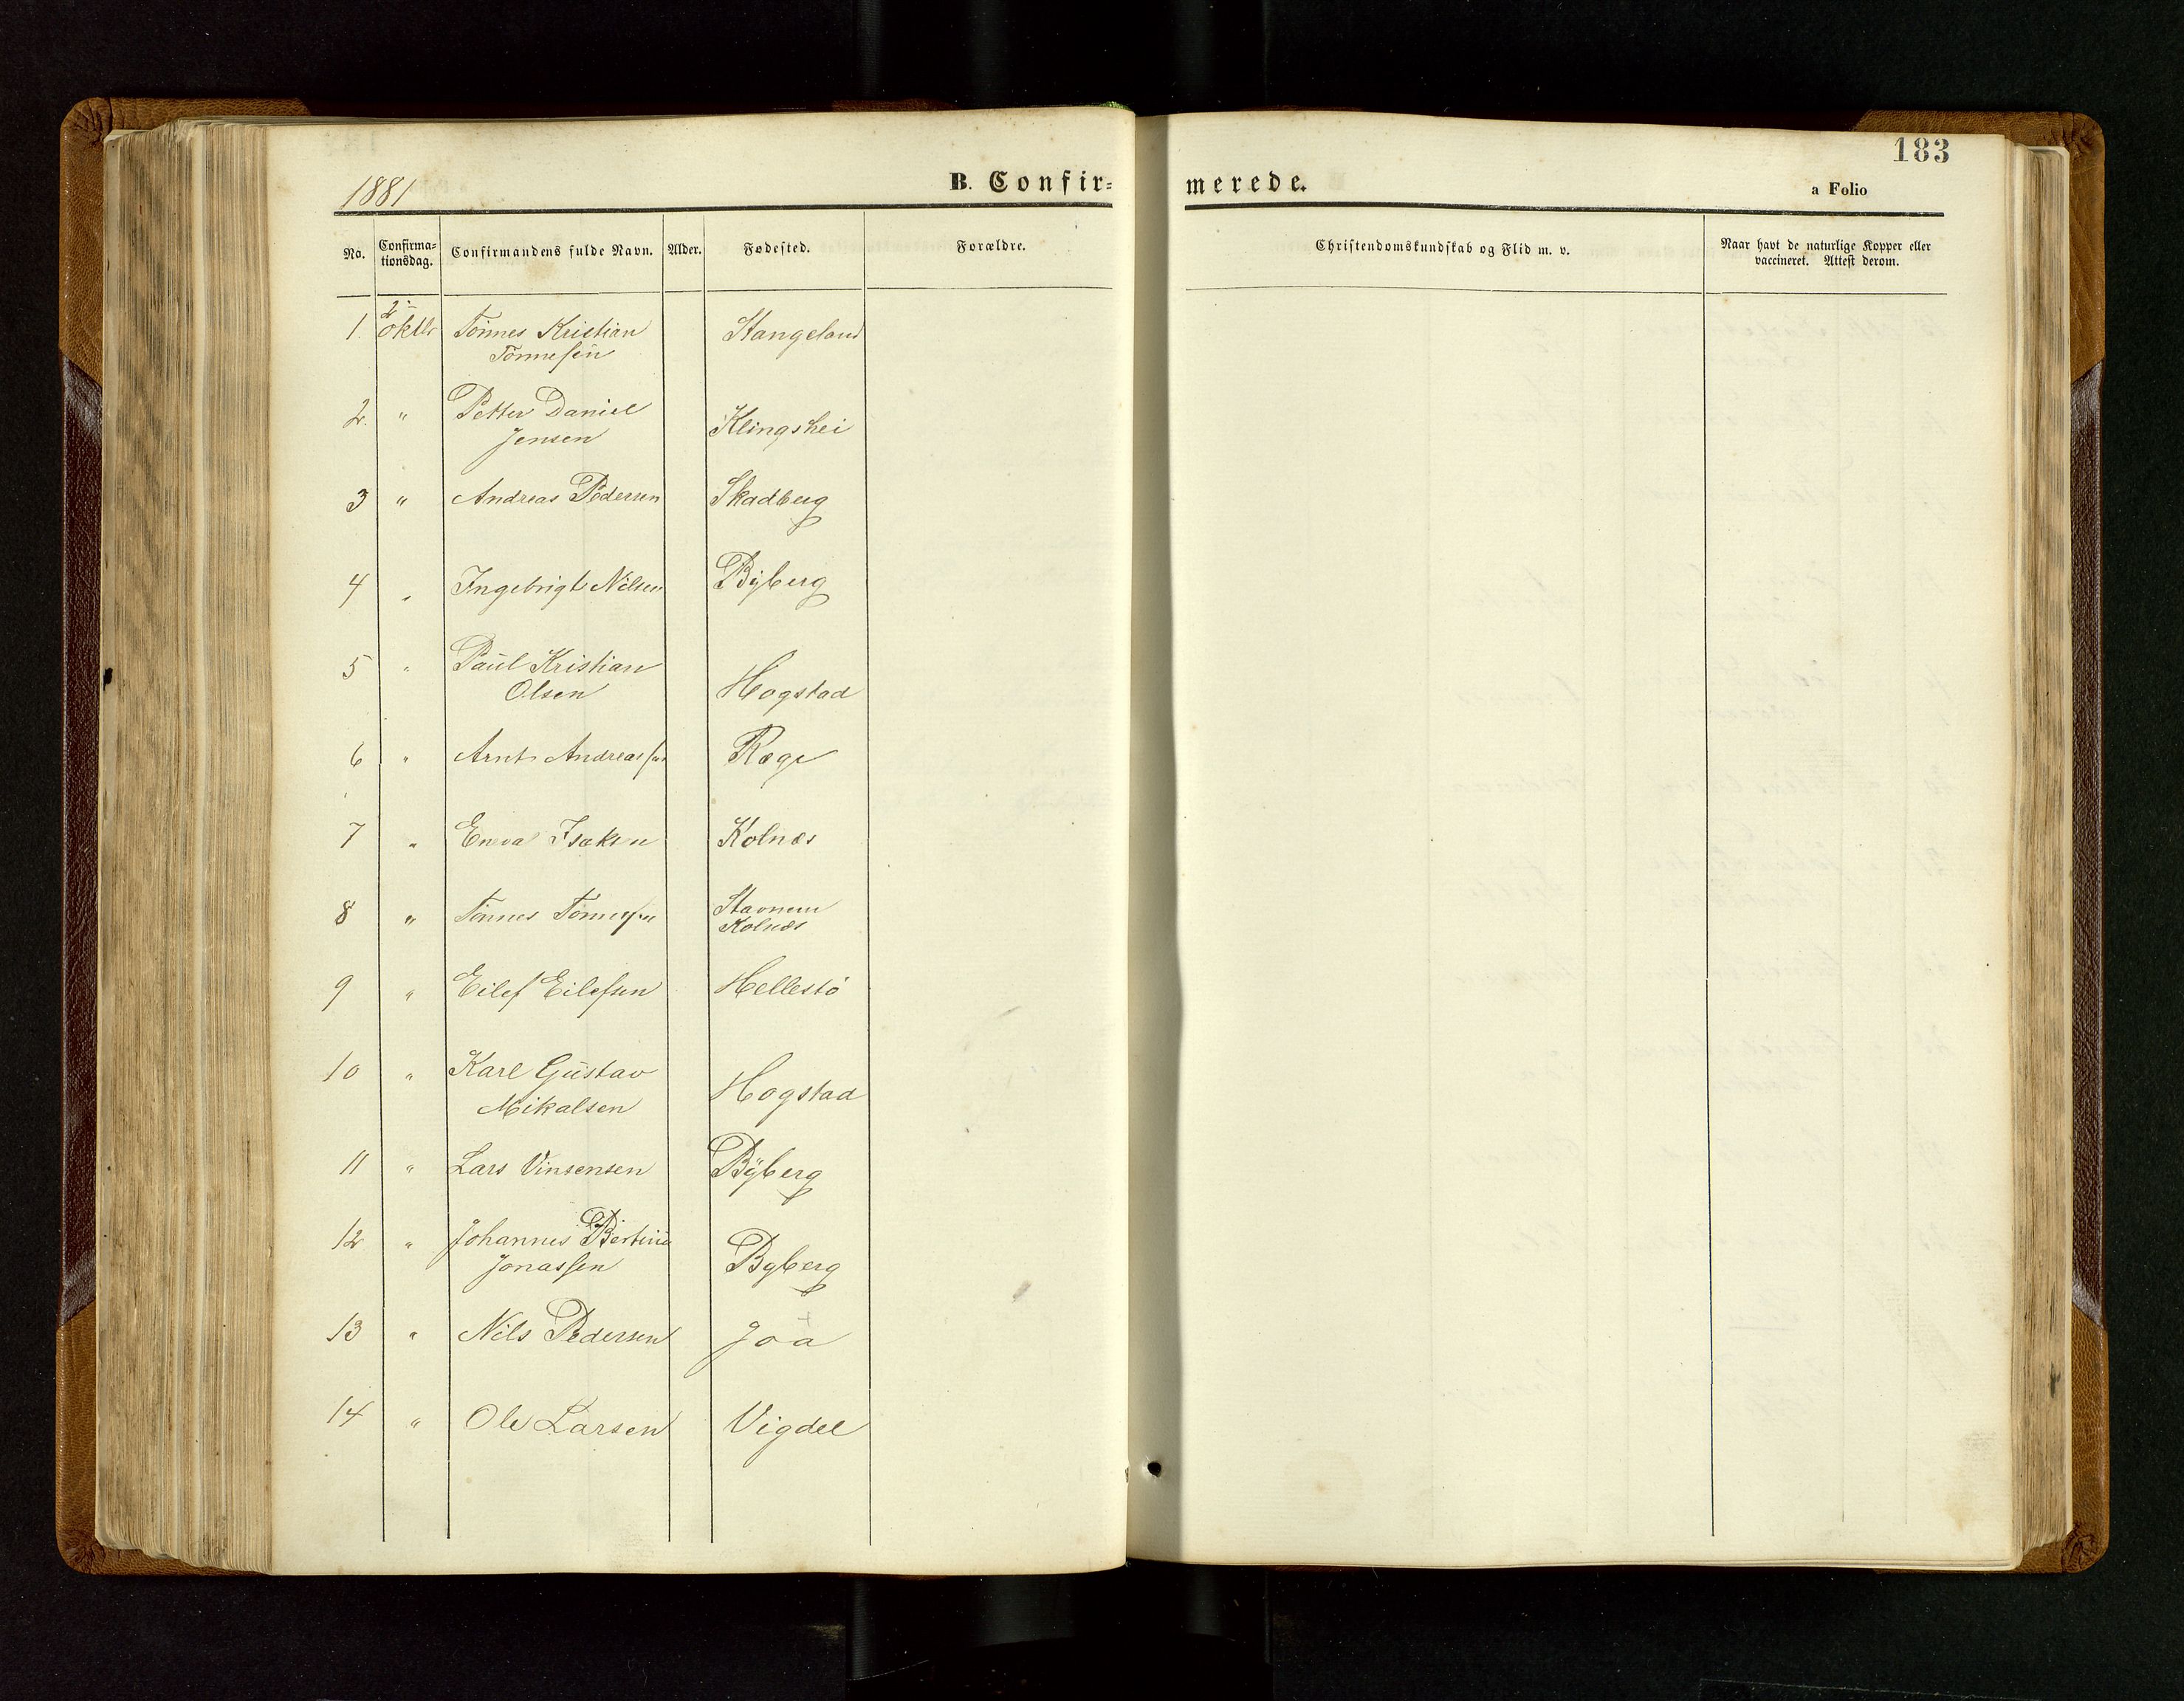 183
1881
B. Confir=
merede.
a Folio
No.
Confirma=
tionsdag.
Confirmandens fulde Navn.
Alder.
Fødested.
Forældre.
Christendomskundskab og Flid m. v.
Naar havt de naturlige Kopper eller
vaccineret. Attest derom.
1. 2 oktbr Tönnes Kristian Stangeland
Tönnesen
2. " Petter Daniel
Jensen Klingshei
3 " Andreas Pedersen Skadberg
4 " Ingebrigt Nilsen Byberg
5 " Paul Kristian
Olsen Hogstad
6 " Arnt Andreassen Rege
7 " Isaksen Kolnes
8 " Tönnes Tönnesen Stavnem
Kolnes
9 " Eilef Eilefsen Hellestö
10 " Karl Gustav
Mikalsen Hogstad
11 " Lars Vinsensen Byberg
12 " Johannes Bertinius
Jonassen Byberg
13 " Nils Pedersen Joa
14 " Ole Larsen Vigdel